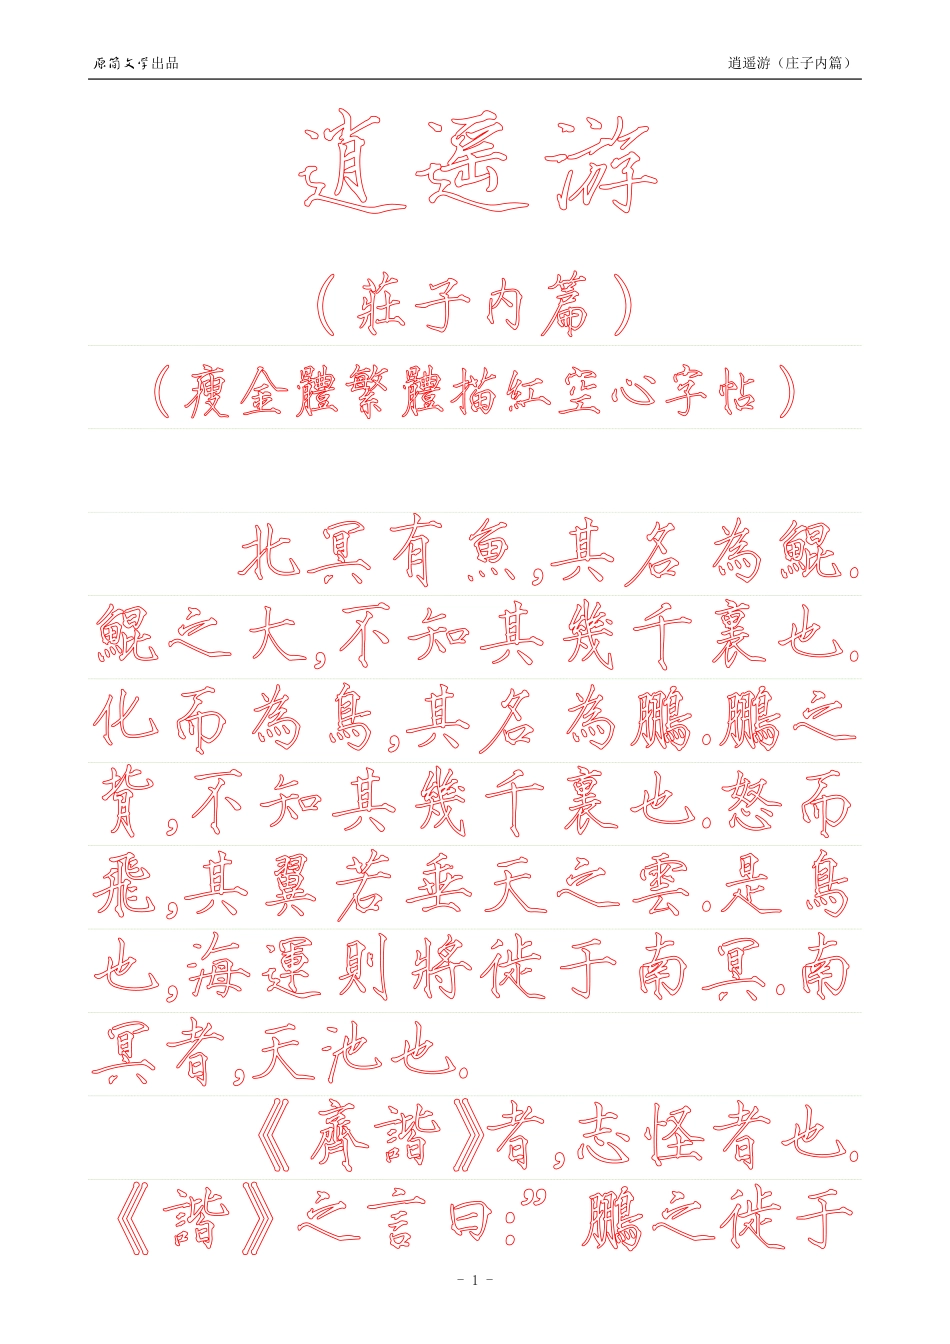 原简文学出品 逍遥游（庄子内篇）
逍遥游
（莊子内篇）
（瘦金體繁體描紅空心字帖）
北冥有魚,其名為鯤.
鯤之大,不知其幾千裏也.
化而為鳥,其名為鵬.鵬之
背,不知其幾千裏也.怒而
飛,其翼若垂天之雲.是鳥
也,海運則將徙于南冥.南
冥者,天池也.
《齊諧》者,志怪者也.
《諧》之言曰:”鵬之徙于
- 1 -